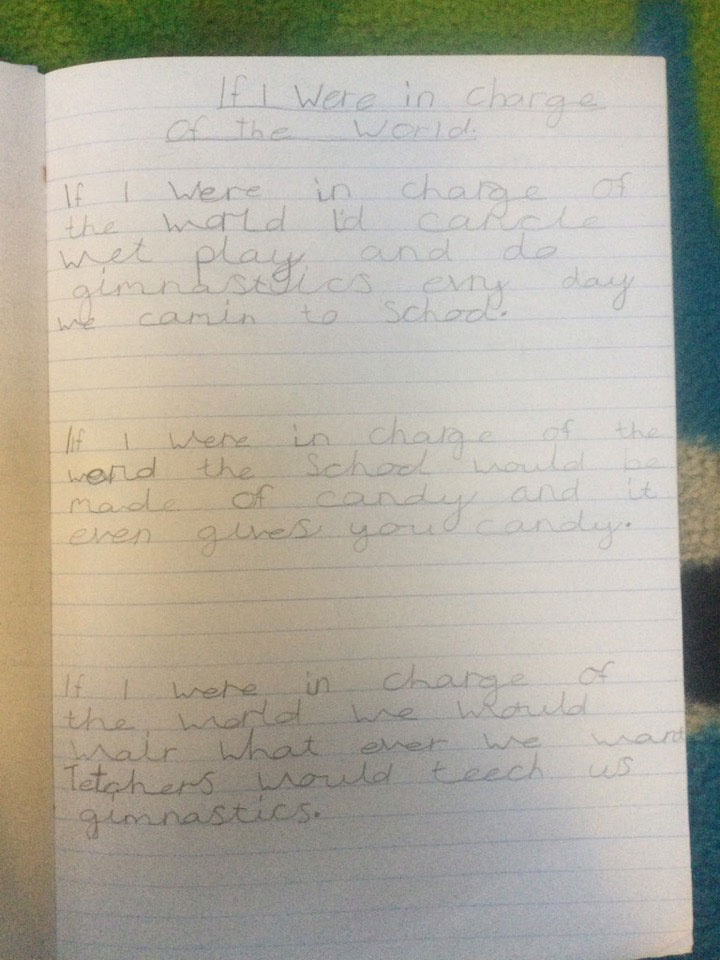 If I Were in charge
Of the World.
If I were in charge of
the world I'd cancle
wet play and do
gimnastics evry day
we camin to School.
If I were in charge of the
werld the School would be
made of candy and it
even gives you candy.
If I were in charge of
the world we would
wair what ever we want
Tetchers would teech us
gimnastics.